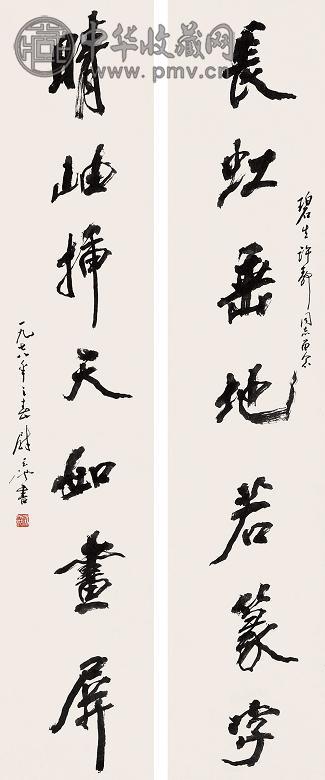 中华收藏网
www.pmv.cn
長虹垂地若篆字
碧生 許静 同志西尔
晴岫插天如畫屏
一九七八年之春 尉天池書